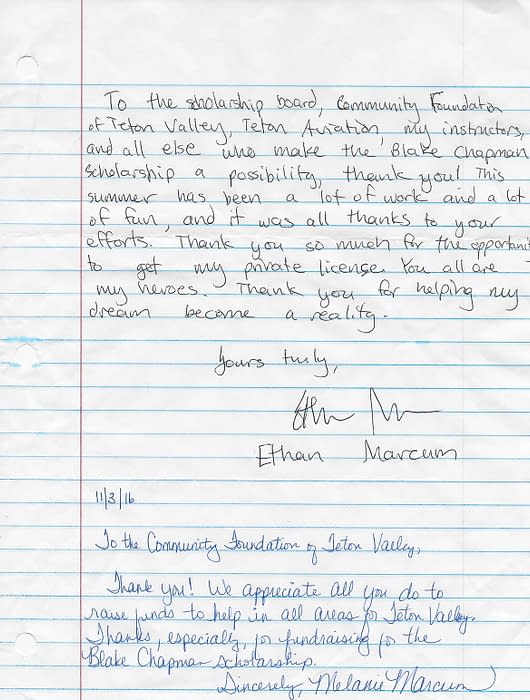 To the scholarship board, Community Foundation
of Teton Valley, Teton Aviation, my instructors,
and all else who make the Blake Chapman
scholarship a possibility, thank you! This
summer has been a lot of work and a lot
of fun, and it was all thanks to your
efforts. Thank you so much for the opportunity
to get my private license. You all are
my heroes. Thank you for helping my
dream become a reality.
Yours truly,
Ethan Marcum
11/3/16
To the Community Foundation of Teton Valley,
Thank you! We appreciate all you do to
raise funds to help in all areas for Teton Valley.
Thanks, especially, for fundraising for the
Blake Chapman scholarship.
Sincerely, Melanie Marcum